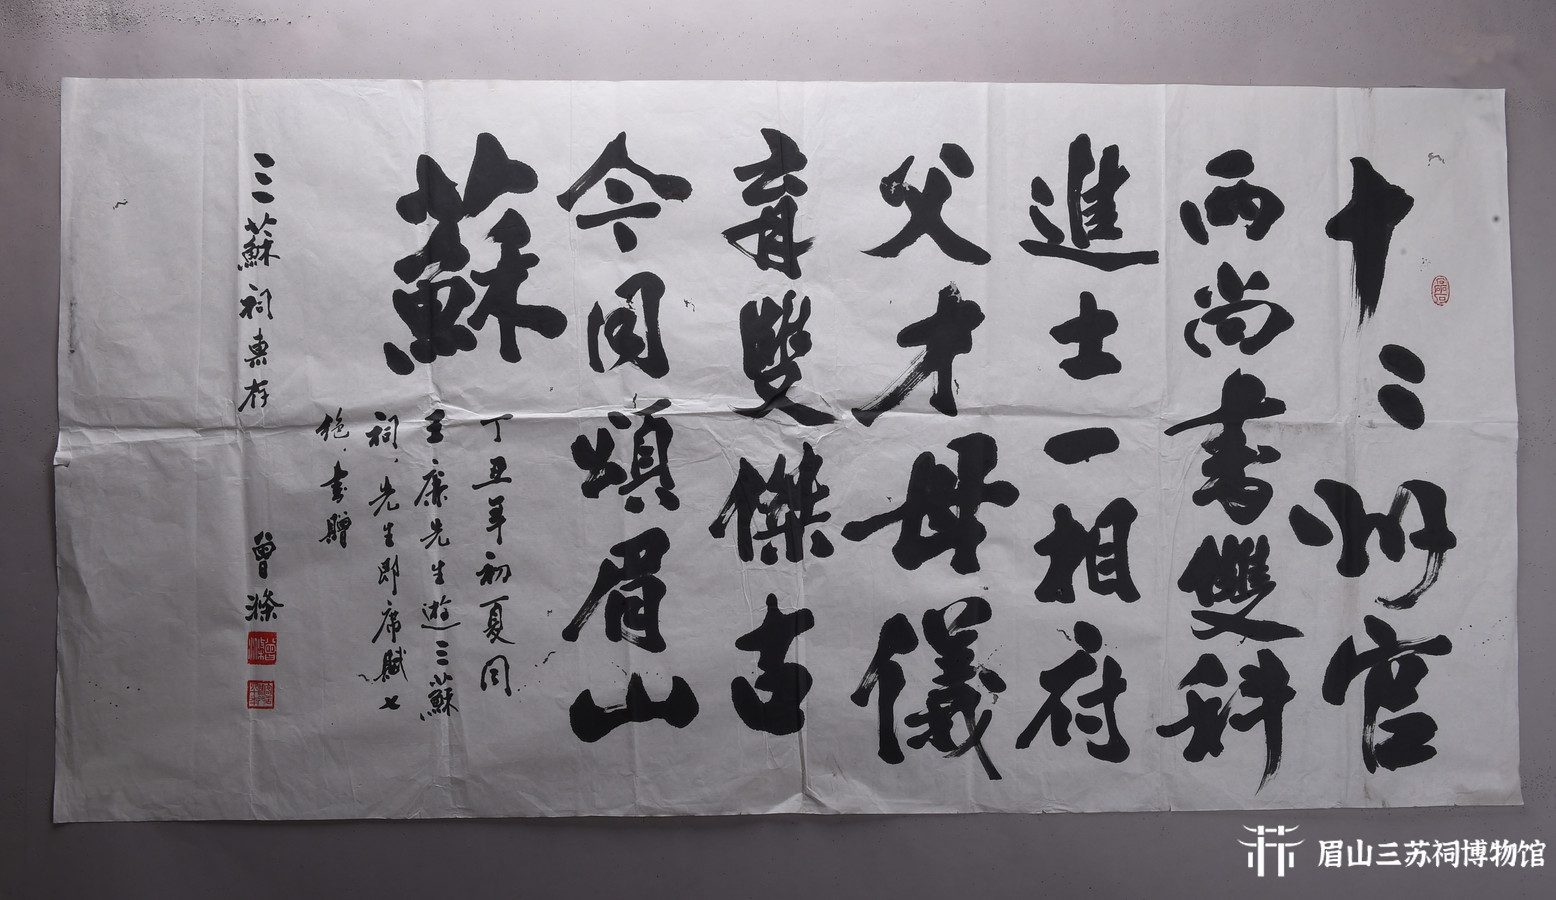 十三州官
两尚書雙科
進士一相府
父才母儀
育雙傑古
今同頌眉山
蘇
丁丑年初夏同
王康先生遊三蘇
祠,先生即席賦七
絶,書贈
三蘇祠惠存
曾滌
眉山三苏祠博物馆